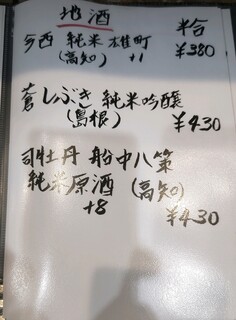 地酒 半合
純米 雄町
(高知) +1 ¥380
蒼しぶき 純米吟醸
(島根) ¥430
司牡丹 船中八策
純米原酒 (高知)
+8 ¥430